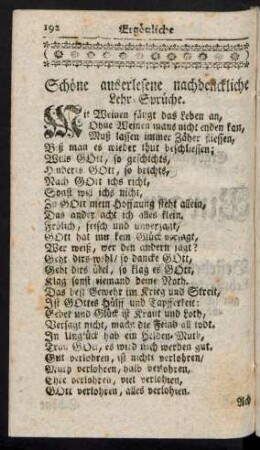 192 Ergötzliche
Schöne auserlesene nachdenckliche
Lehr-Sprüche.
Mit Weinen fängt das Leben an,
Ohne Weinen mans nicht enden kan,
Muß lassen immer Zäher fliessen,
Biß man es wieder thut beschliessen;
Wills GOtt, so geschichts,
Hinderts GOtt, so brichts,
Nach GOtt ichs richt,
Sonst will ichs nicht,
Zu GOtt mein Hoffnung steht allein,
Das ander acht ich alles klein,
Frölich, frisch und unverzagt,
GOtt hat mir kein Glück versagt,
Wer weiß, wer den andern jagt?
Geht dirs wohl/ so dancke GOtt,
Geht dirs übel, so klag es GOtt,
Klag sonst niemand deine Noth.
Das best Gewehr im Krieg und Streit,
Ist GOttes Hülff und Tapfferkeit:
Gebet und Glück ist Kraut und Loth,
Versagt nicht, macht die Feind all todt.
In Unglück hab ein Helden-Muth,
Trau GOtt, es wird noch werden gut.
Gut verlohren, ist nichts verlohren,
Muth verlohren, halb verlohren,
Ehre verlohren, viel verlohren,
GOtt verlohren, alles verlohren.